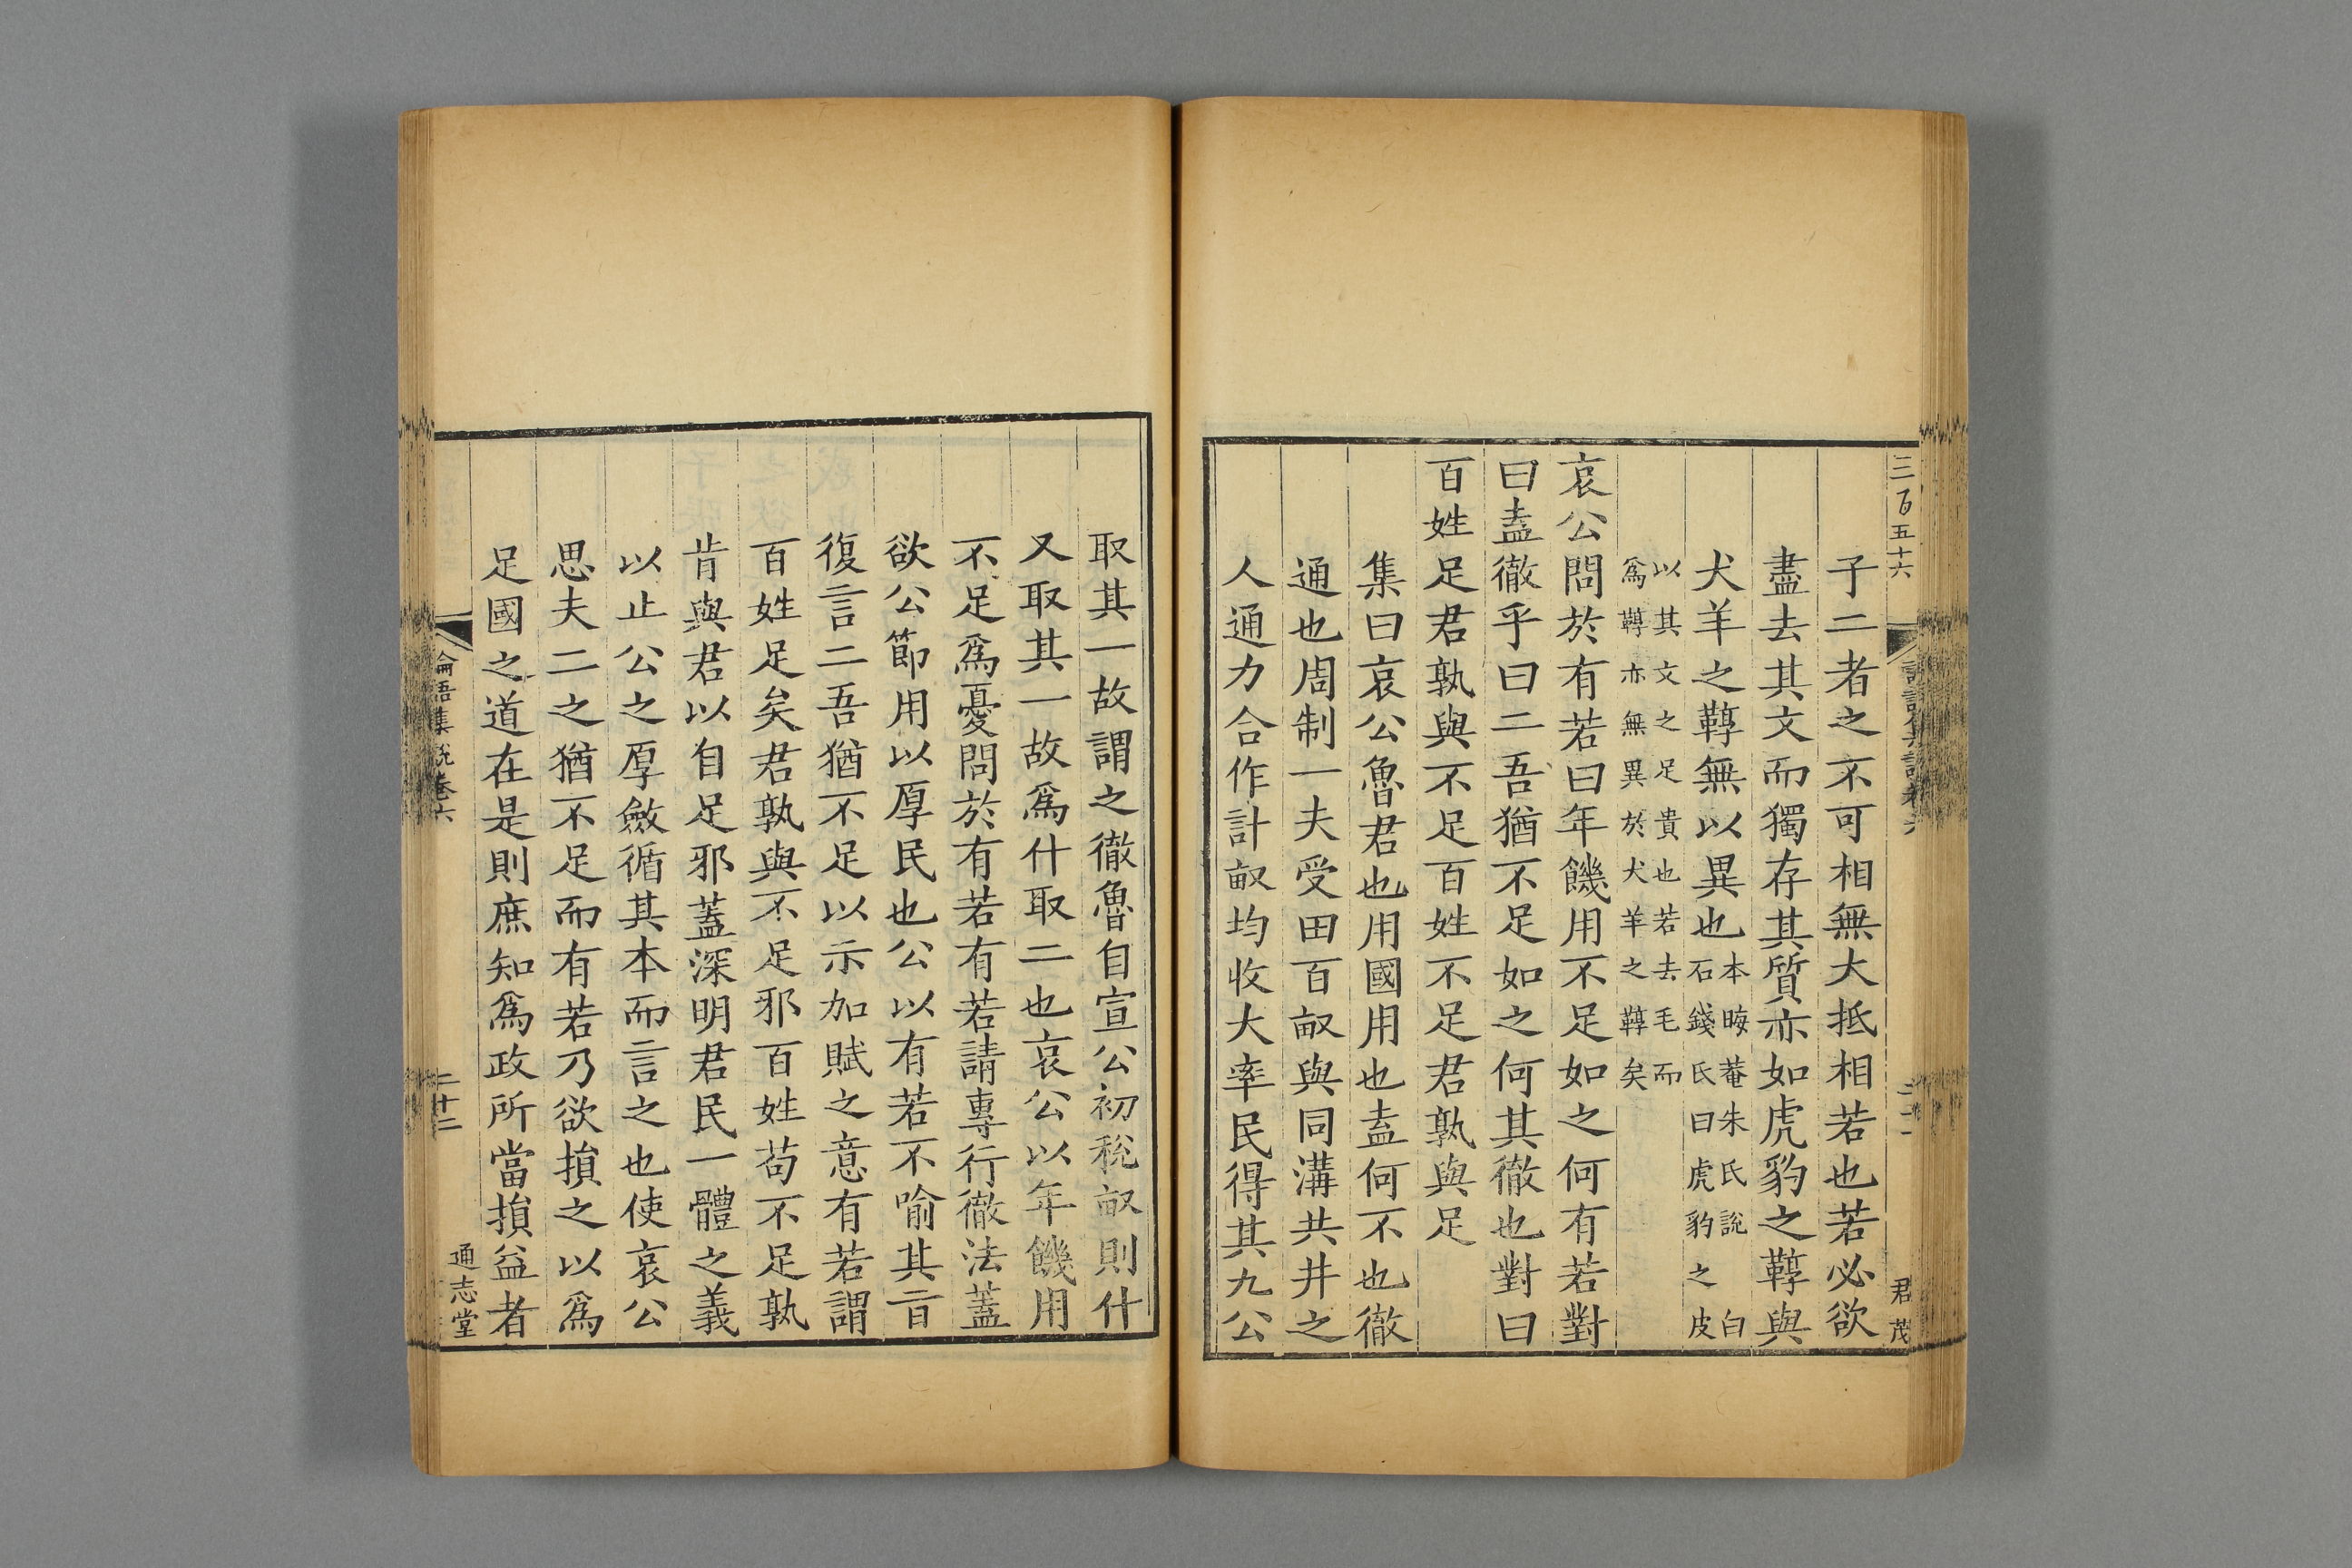 三百五十六
君茂
子二者之不可相無大抵相若也若必欲
盡去其文而獨存其質亦如虎豹之鞟與
犬羊之鞟無以異也本晦菴朱氏說 白
石錢氏曰虎豹之皮
以其文之足貴也若去毛而
爲鞟亦無異於犬羊之鞟矣
哀公問於有若曰年饑用不足如之何有若對
曰盍徹乎曰二吾猶不足如之何其徹也對曰
百姓足君孰與不足百姓不足君孰與足
集曰哀公魯君也用國用也盍何不也徹
通也周制一夫受田百畝與同溝共井之
人通力合作計畝均收大率民得其九公
取其一故謂之徹魯自宣公初稅畝則什
又取其一故爲什取二也哀公以年饑用
不足爲憂問於有若有若請專行徹法蓋
欲公節用以厚民也公以有若不喻其旨
復言二吾猶不足以示加賦之意有若謂
百姓足矣君孰與不足邪百姓苟不足孰
肯與君以自足邪蓋深明君民一體之義
以止公之厚斂循其本而言之也使哀公
思夫二之猶不足而有若乃欲損之以爲
足國之道在是則庶知爲政所當損益者
論語集說卷六
二十二
通志堂